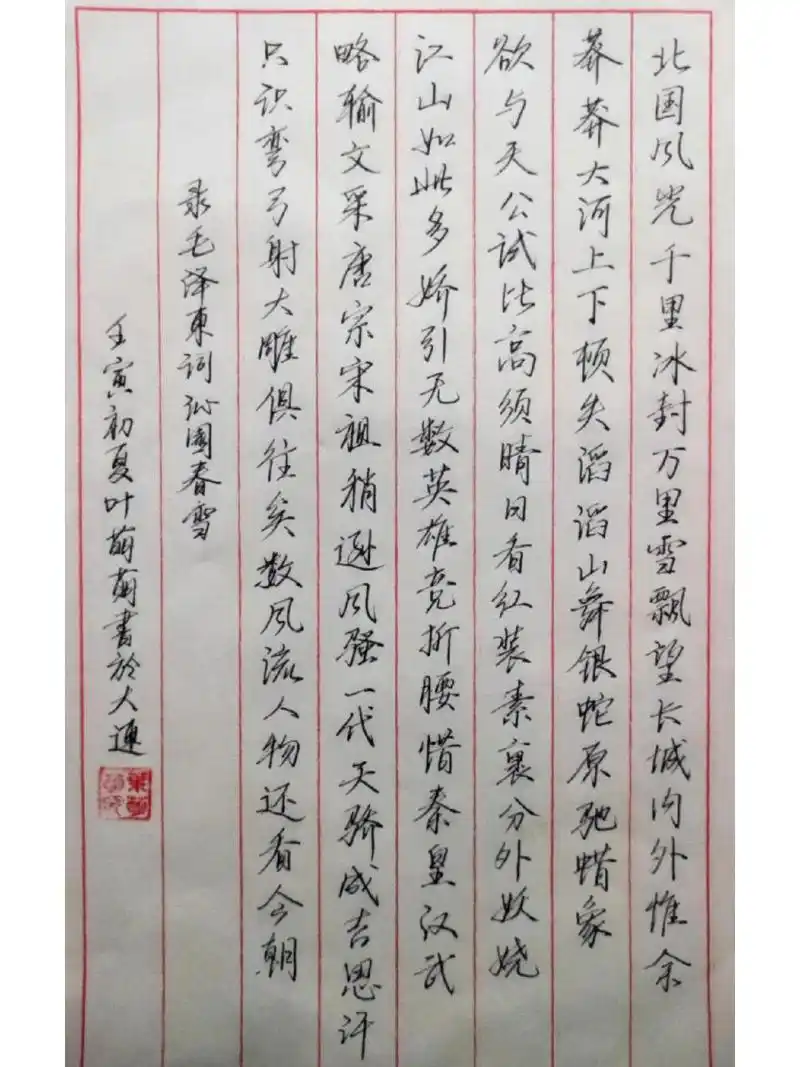 北国风光千里冰封万里雪飘望长城内外惟余
莽莽大河上下顿失滔滔山舞银蛇原驰蜡象
欲与天公试比高须晴日看红装素裹分外妖娆
江山如此多娇引无数英雄竞折腰惜秦皇汉武
略输文采唐宗宋祖稍逊风骚一代天骄成吉思汗
只识弯弓射大雕俱往矣数风流人物还看今朝
录毛泽東词沁園春雪
壬寅初夏叶萌萌書於大連